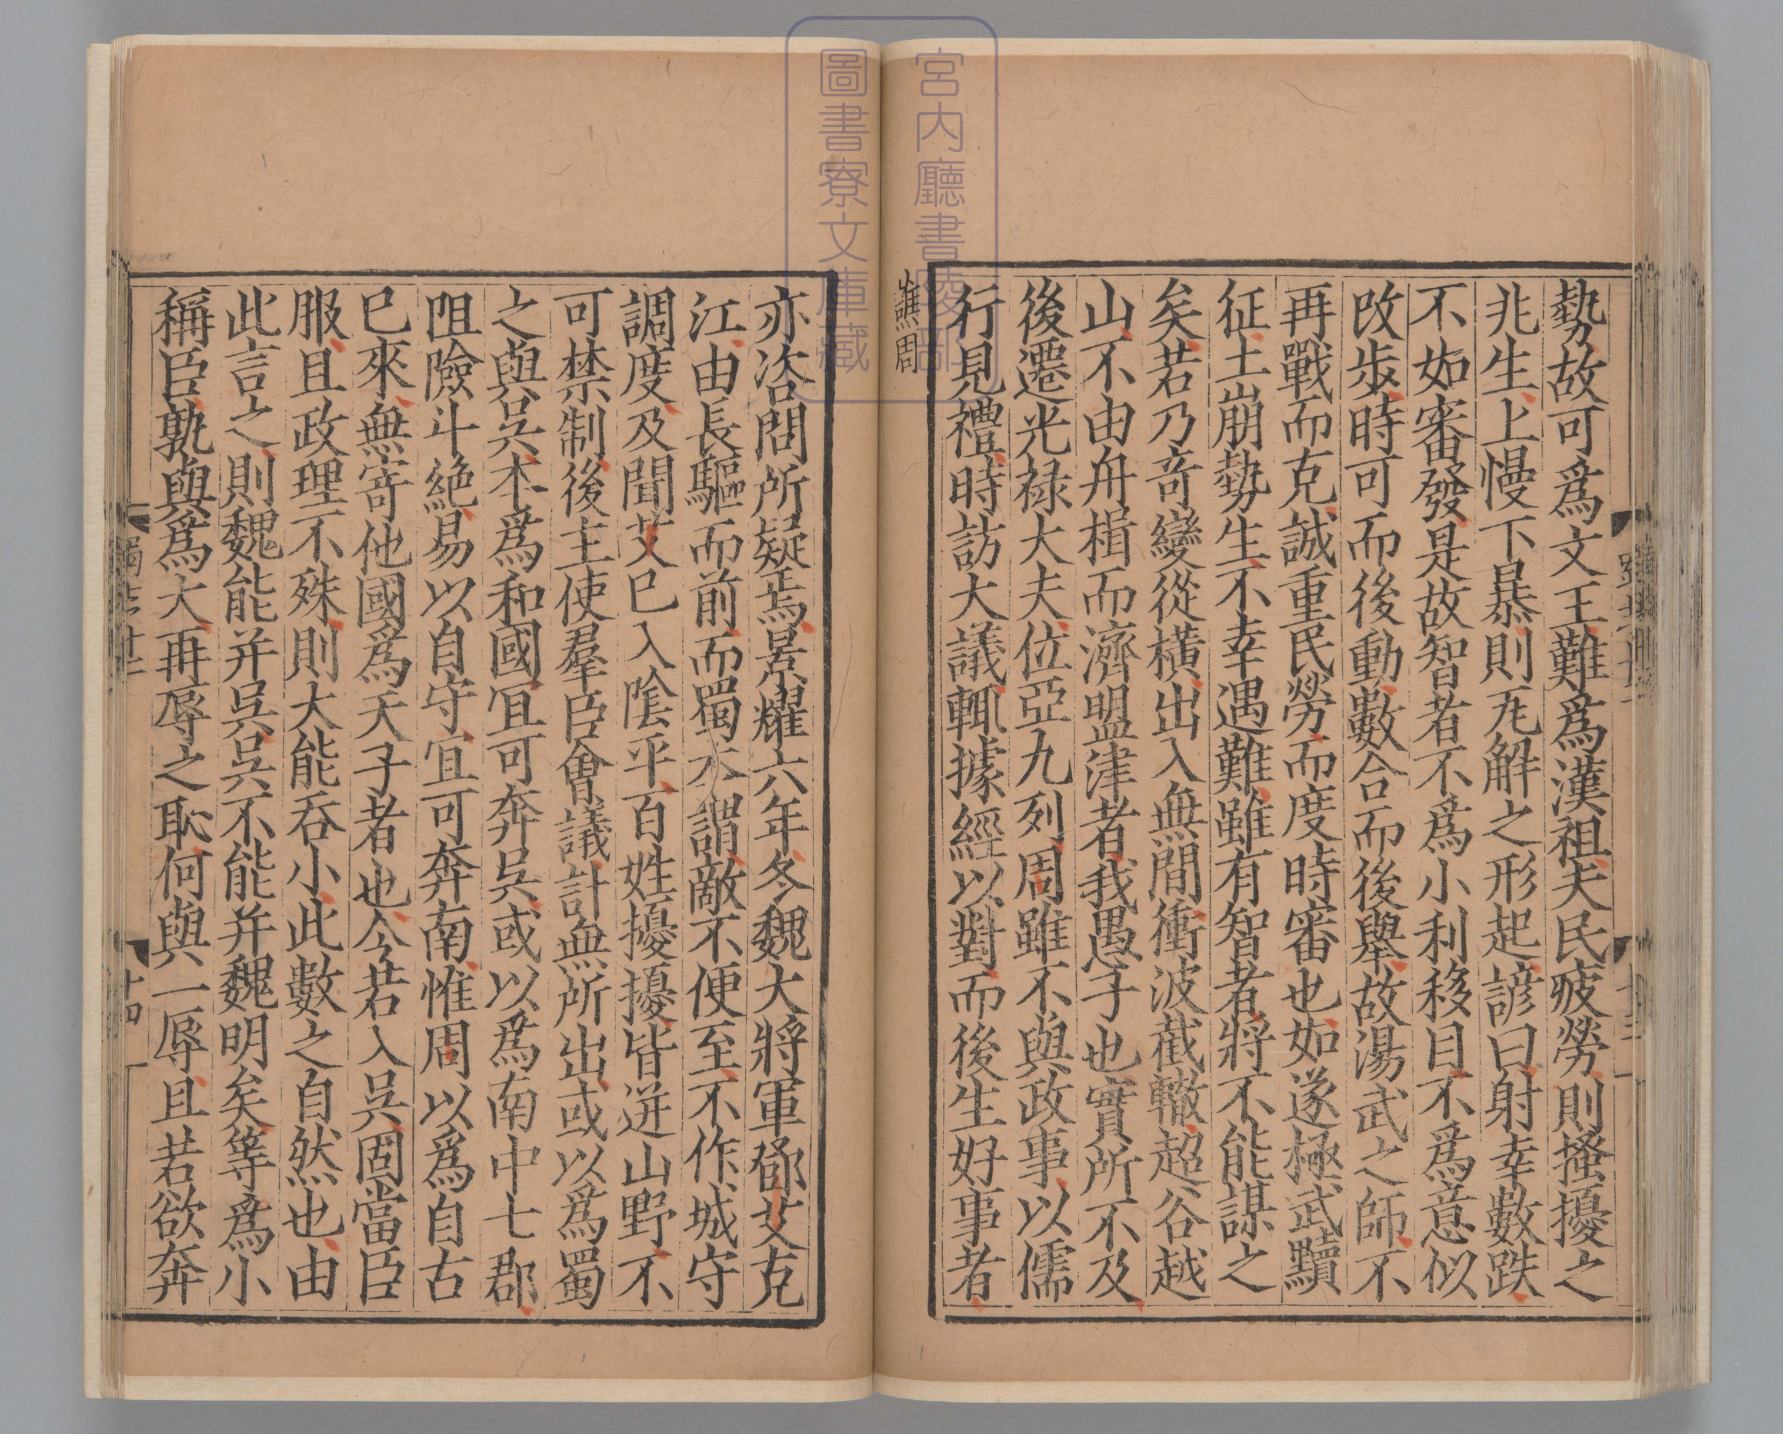 勢故可爲文王難爲漢祖夫民疲勞則搔擾之
兆生上慢下暴則无解之形起諺曰射幸數跌
不如審發是故智者不爲小利移目不爲意似
改步時可而後動數合而後舉故湯武之師不
再戰而克誠重民勞而度時審也如遂極武黷
征土崩勢生不幸遇難雖有智者將不能謀之
矣若乃奇變從橫出入無間衝波截轍超谷越
山不由舟楫而濟盟津者我愚子也實所不及
後遷光禄大夫位亞九列周雖不與政事以儒
行見禮時訪大議輒據經以對而後生好事者
譙周
亦咨問所疑焉景耀六年冬魏大將軍鄧艾克
江由長驅而前而蜀本謂敵不便至不作城守
調度及聞艾已入陰平百姓擾擾皆迸山野不
可禁制後主使羣臣會議計無所出或以爲蜀
之與吳本爲和國宜可奔吳或以爲南中七郡
阻險斗絶易以自守宜可奔南惟周以爲自古
已來無寄他國爲天子者也今若入吳固當臣
服且政理不殊則大能吞小此數之自然也由
此言之則魏能并吳吳不能并魏明矣等爲小
稱臣孰與爲大再辱之恥何與一辱且若欲奔
十四
宮内廳書陵部
圖書寮文庫藏